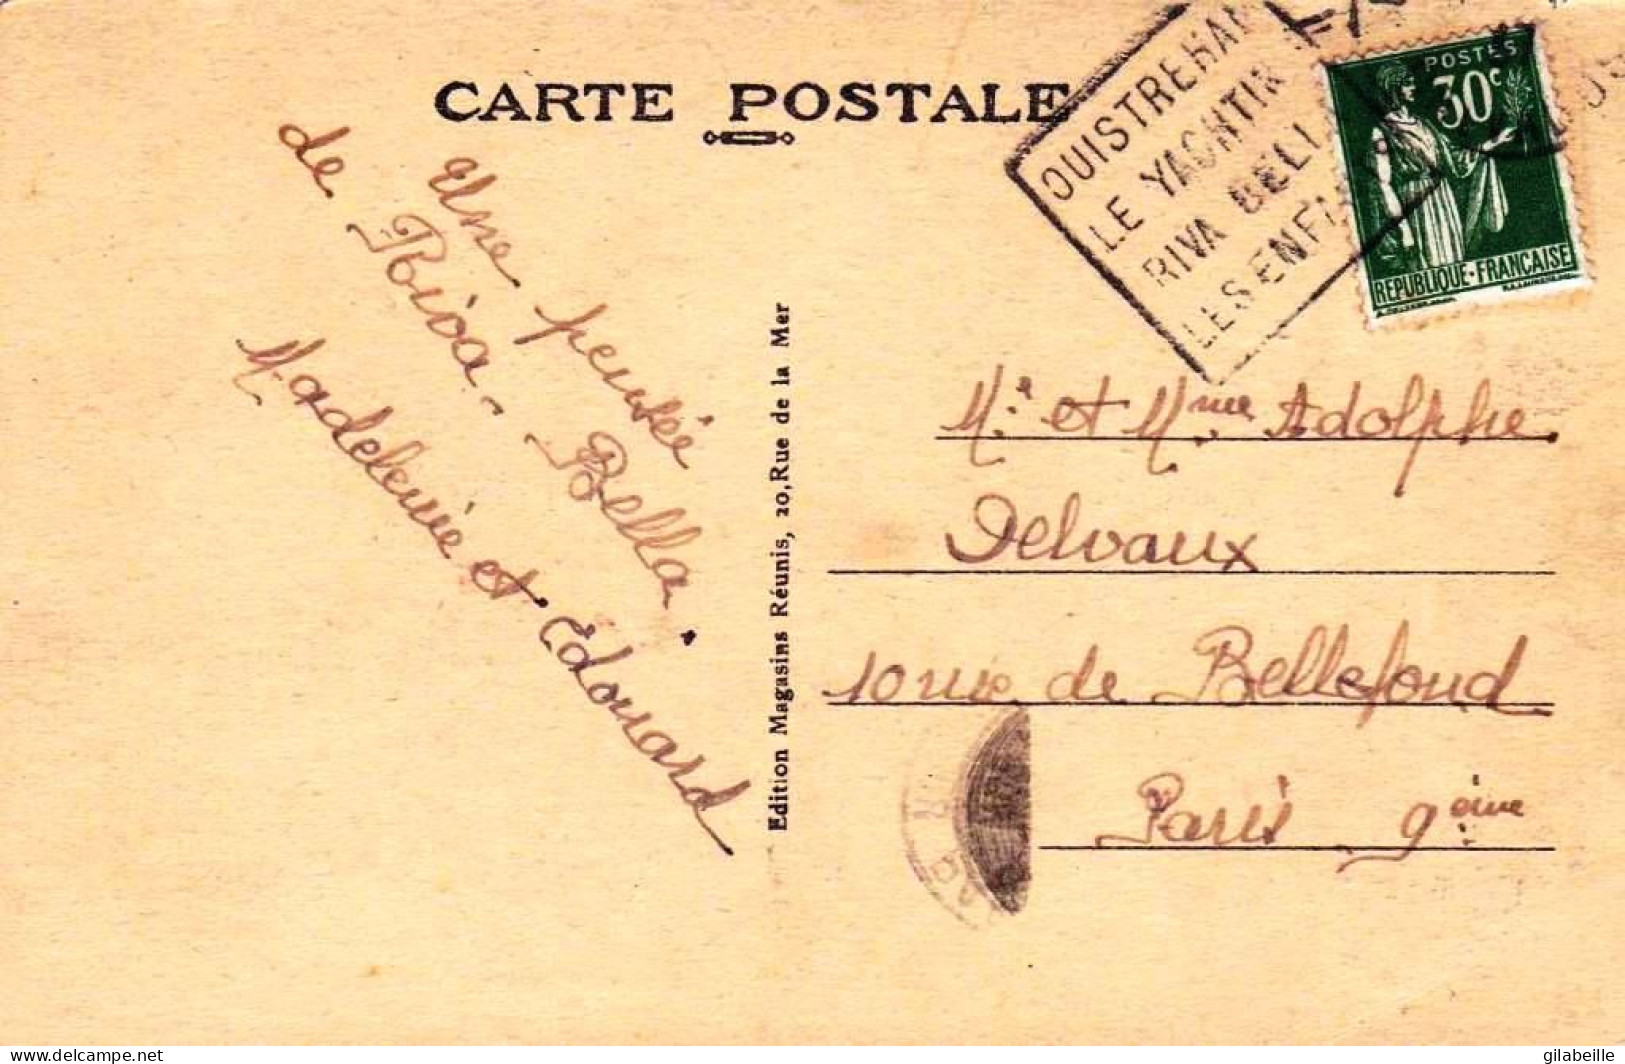 CARTE POSTALE
Une pensée
de Riva-Bella.
Madeleine et Edouard
Edition Magasins Réunis, 20, Rue de la Mer
OUISTREHAM
LE YACHTIN
RIVA BELLA
LES ENF
POSTES
30c
REPUBLIQUE·FRANÇAISE
Mr et Mme Adolphe
Delvaux
10 rue de Bellefond
Paris 9ème
https://www.delcampe.net
gilabeille